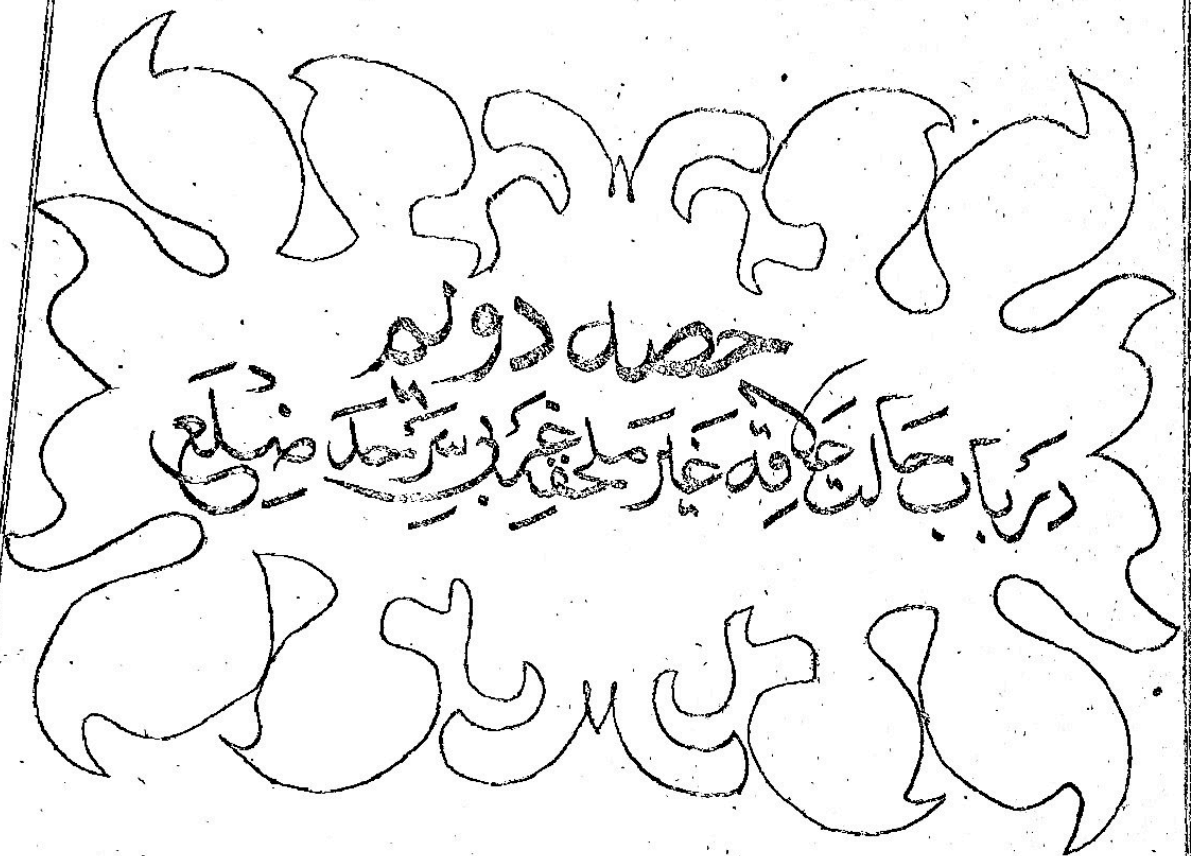 حصہ دوئم
در باب حالت علاقہ غیر ملحقہ غربی سرحد ضلع